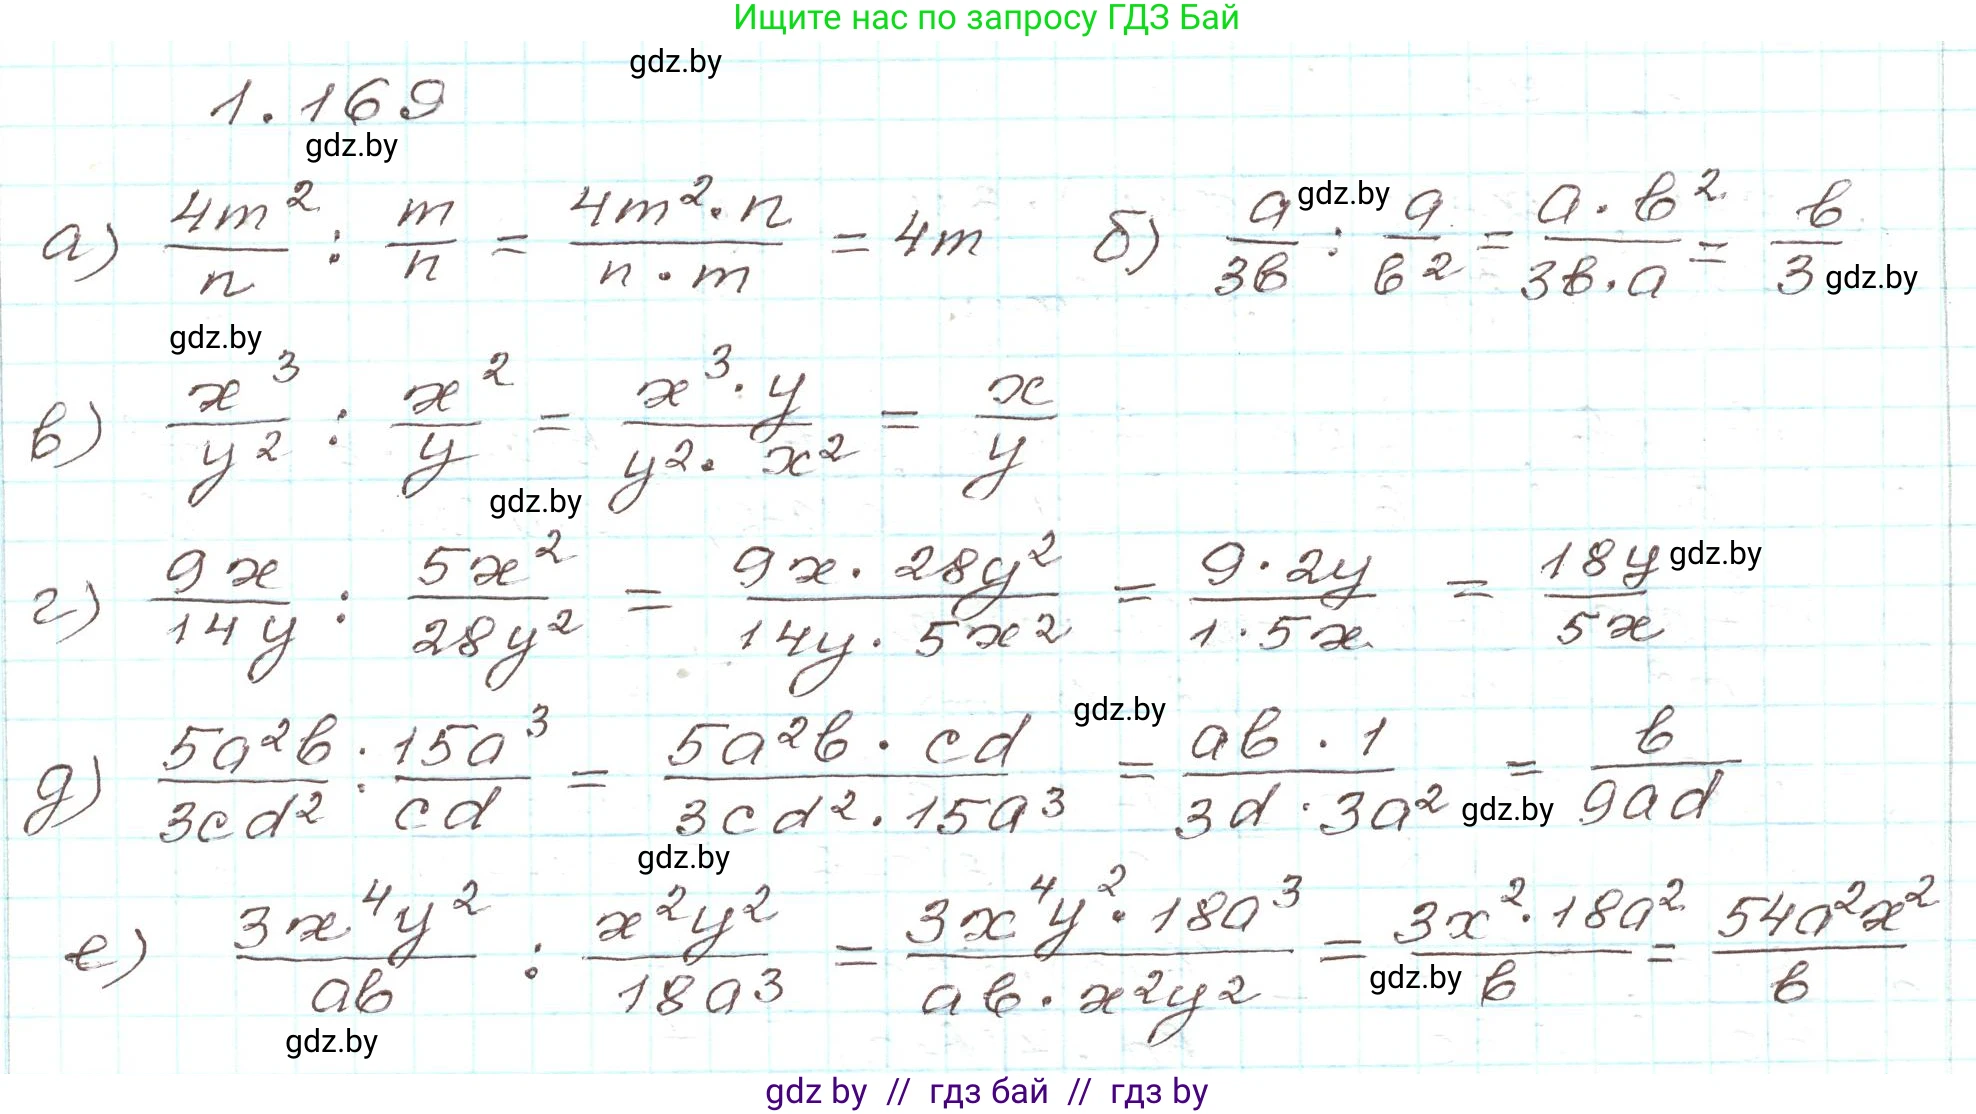 Ищите нас по запросу ГДЗ Бай
gdz.by
1.169
gdz.by
а) 4m²/n : m/n = 4m²·n/n·m = 4m б) a/3в : a/в² = a·в²/3в·a = в/3
gdz.by
gdz.by
gdz.by
в) x³/y² : x²/y = x³·y/y²·x² = x/y
gdz.by
г) 9x/14y : 5x²/28y² = 9x·28y²/14y·5x² = 9·2y/1·5x = 18y/5x
gdz.by
gdz.by
д) 5a²в/3cd² : 15a³/cd = 5a²в·cd/3cd²·15a³ = aв·1/3d·3a² = в/9ad
gdz.by
gdz.by
е) 3x⁴y²/aв : x²y²/18a³ = 3x⁴y²·18a³/aв·x²y² = 3x²·18a²/в = 54a²x²/в
gdz.by
gdz.by
gdz by // гдз бай // гдз by